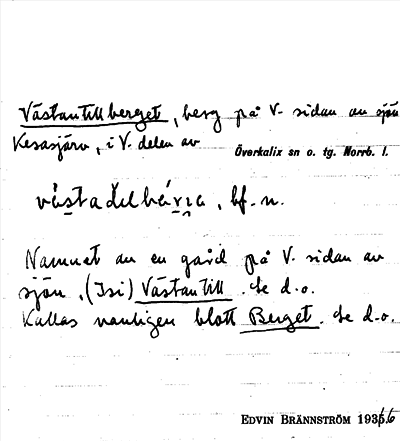 Västantillberget, berg på V. sidan av sjön
Kesasjärv, i V. delen av
Överkalix sn o. tg. Norrb. l.
bf. n.
Namnet av en gård på V. sidan av
sjön, (Isi) Västantill. Se d.o.
Kallas vanligen blott Berget. Se d.o.
EDVIN BRÄNNSTRÖM 1936